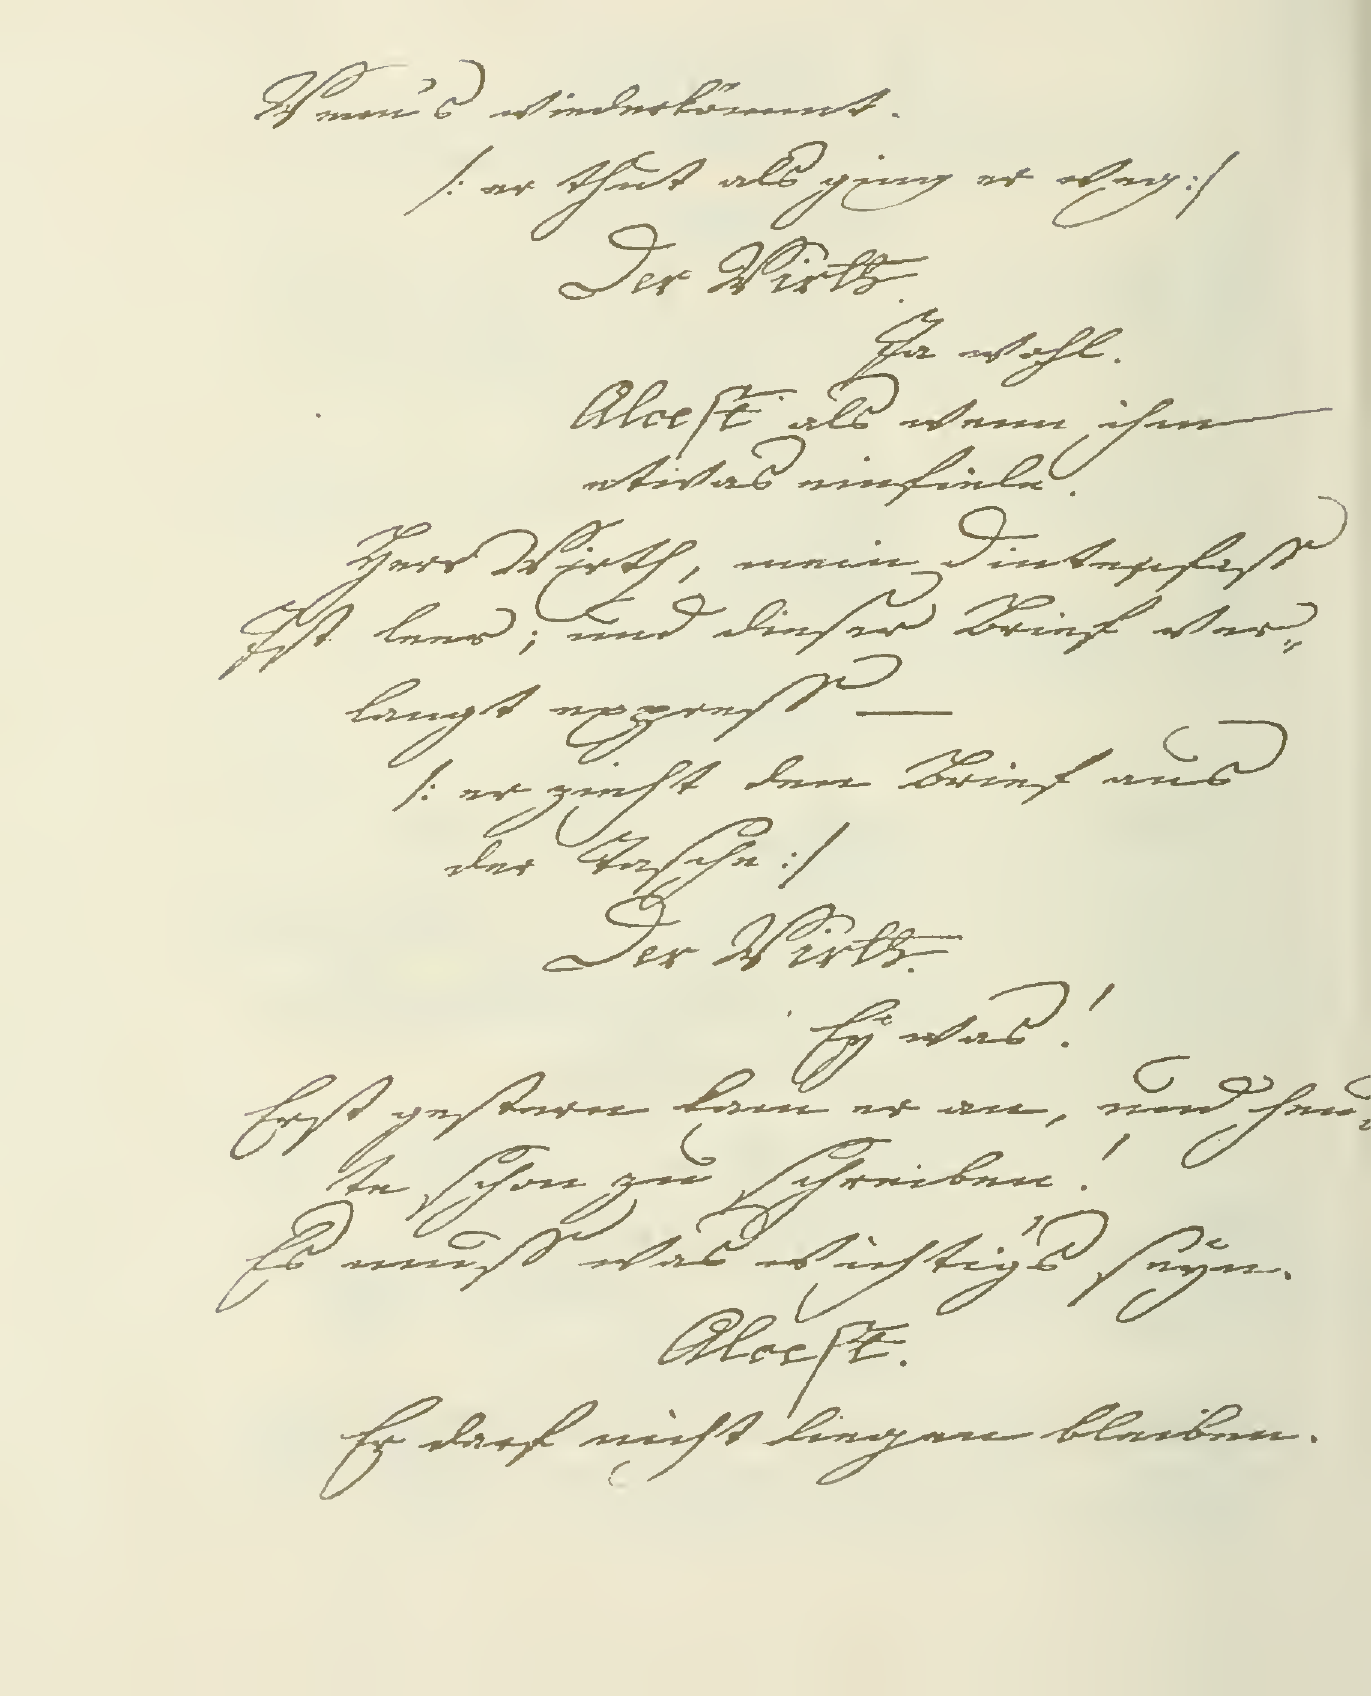 Wenn's wiederkömmt.
/: er thut als ging er weg :/
Der Wirth.
Ja wohl.
Alcest als wenn ihm
etwas einfiele.
Herr Wirth, mein Dintenfass
Ist leer; und dieser Brief ver„
langt express —
/: er zieht den Brief aus
der Tasche :/
Der Wirth.
Ey was!
Erst gestern kam er an, und heu„
te schon zu schreiben!
Es muss was wichtig's seyn.
Alcest.
Er darf nicht liegen bleiben.